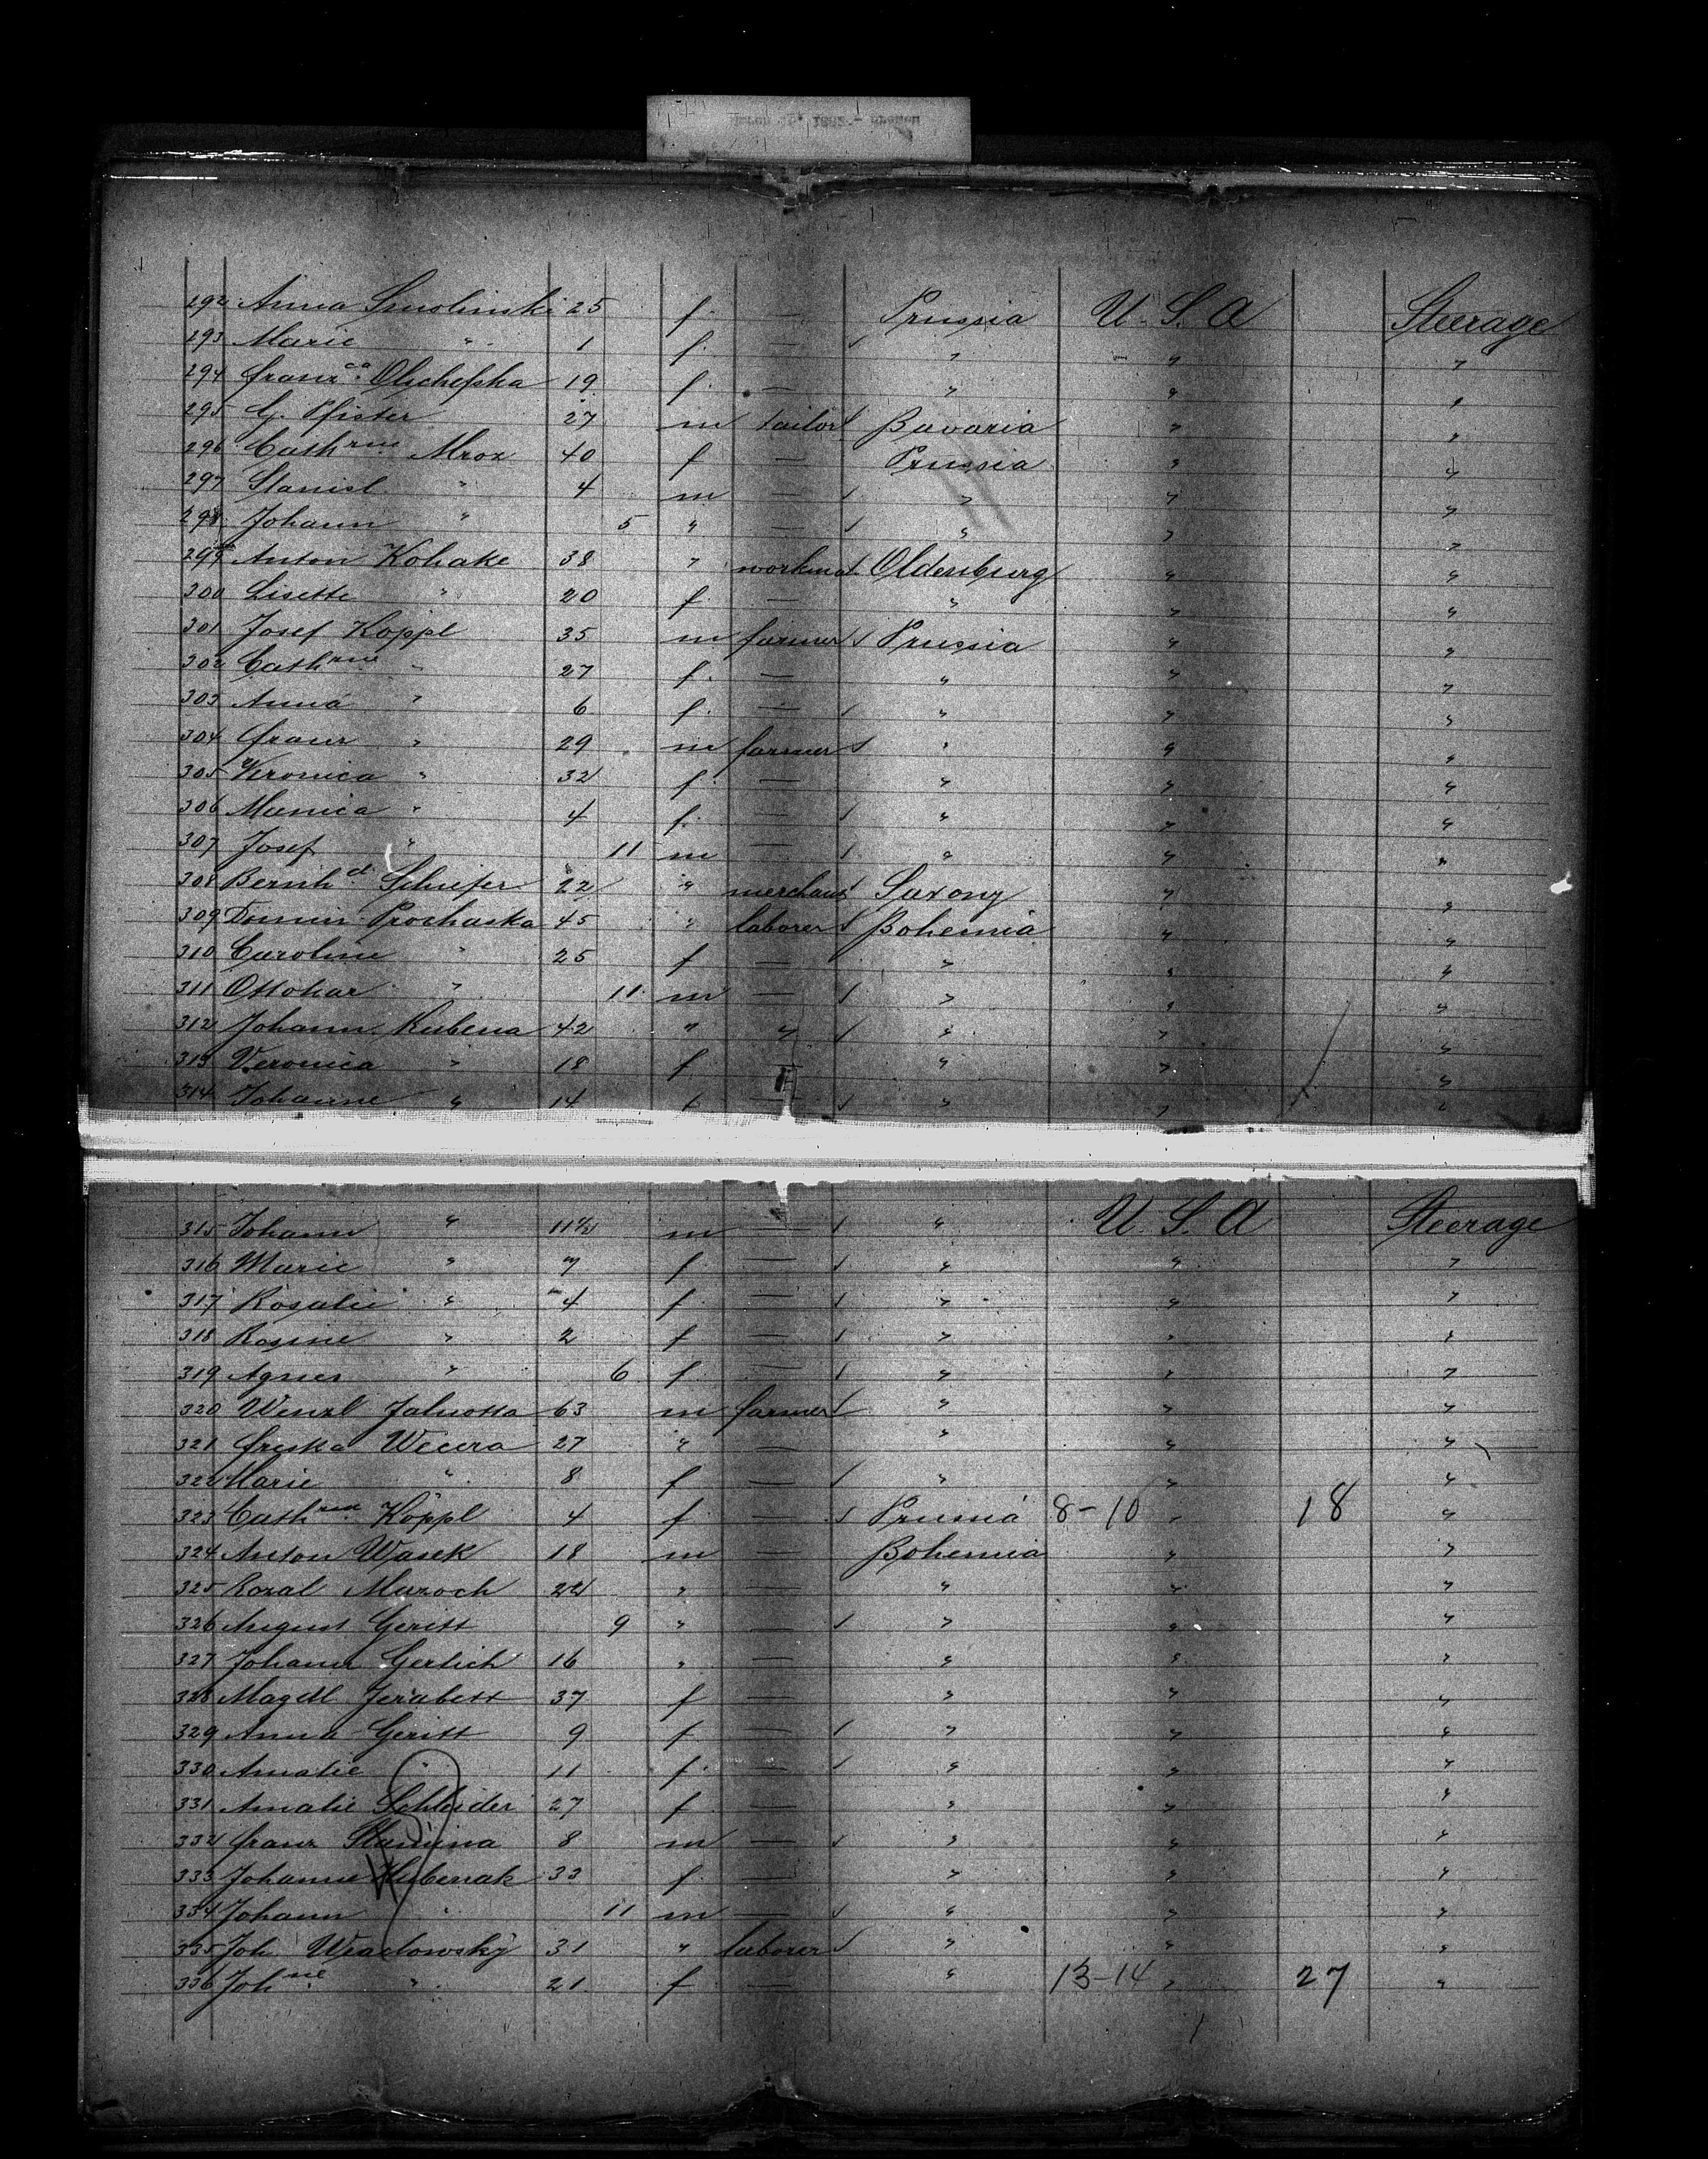 292 Anna Smolinski 25 f. — Prussia U. S. A Steerage
293 Marie " 1 f. — " " "
294 Franz ca Olschefska 19 f. — " " "
295 G. Pfister 27 m tailor Bavaria " "
296 Cath rine Mroz 40 f — Prussia " "
297 Stanisl " 4 m — " " "
298 Johann " 5 " — " " "
299 Anton Kohake 38 " workman Oldenburg " "
300 Lisette " 20 f. — " " "
301 Josef Köppl 35 m farmer Prussia " "
302 Cath rine " 27 f. — " " "
303 Anna " 6 f. — " " "
304 Franz " 29 m farmer " " "
305 Veronica " 32 f. — " " "
306 Munica " 4 f. — " " "
307 Josef " 11 m — " " "
308 Bernh d. Schiefer 22 " merchant Saxony " "
309 Domin Prochaska 45 " laborer Bohemia " "
310 Caroline " 25 f — " " "
311 Ottokar " 11 m — " " "
312 Johann Kubena 42 " " " " "
313 Veronica " 18 f — " " "
314 Johanne " 14 f — " " "
315 Johann " 11 m — " U. S. A Steerage
316 Marie " 7 f. — " " "
317 Rosalie " 4 f — " " "
318 Rosine " 2 f — " " "
319 Agnes " 6 f. — " " "
320 Wenzl 63 m farmer " " "
321 Wecera 27 " — " " "
322 Marie " 8 f — " " "
323 Cath rina Köppl 4 f — Prussia 8-10 " 18 "
324 Anton Wasek 18 m — Bohemia " "
325 Rozal Maroch 22 " — " " "
326 August Geritt 9 " — " " "
327 Johann Gerlich 16 " — " " "
328 Magdl Jerabett 37 f — " " "
329 Anna Geritt 9 f — " " "
330 Amalie " 11 f. — " " "
331 Amalie Schleider 27 f — " " "
332 Franz Slamina 8 m — " " "
333 Johanne Hubenak 33 f. — " " "
334 Johann " 11 m — " " "
335 Joh. Wiadowsky 31 " laborer " " "
336 Joh ne " 21 f — " 13-14 " 27 "